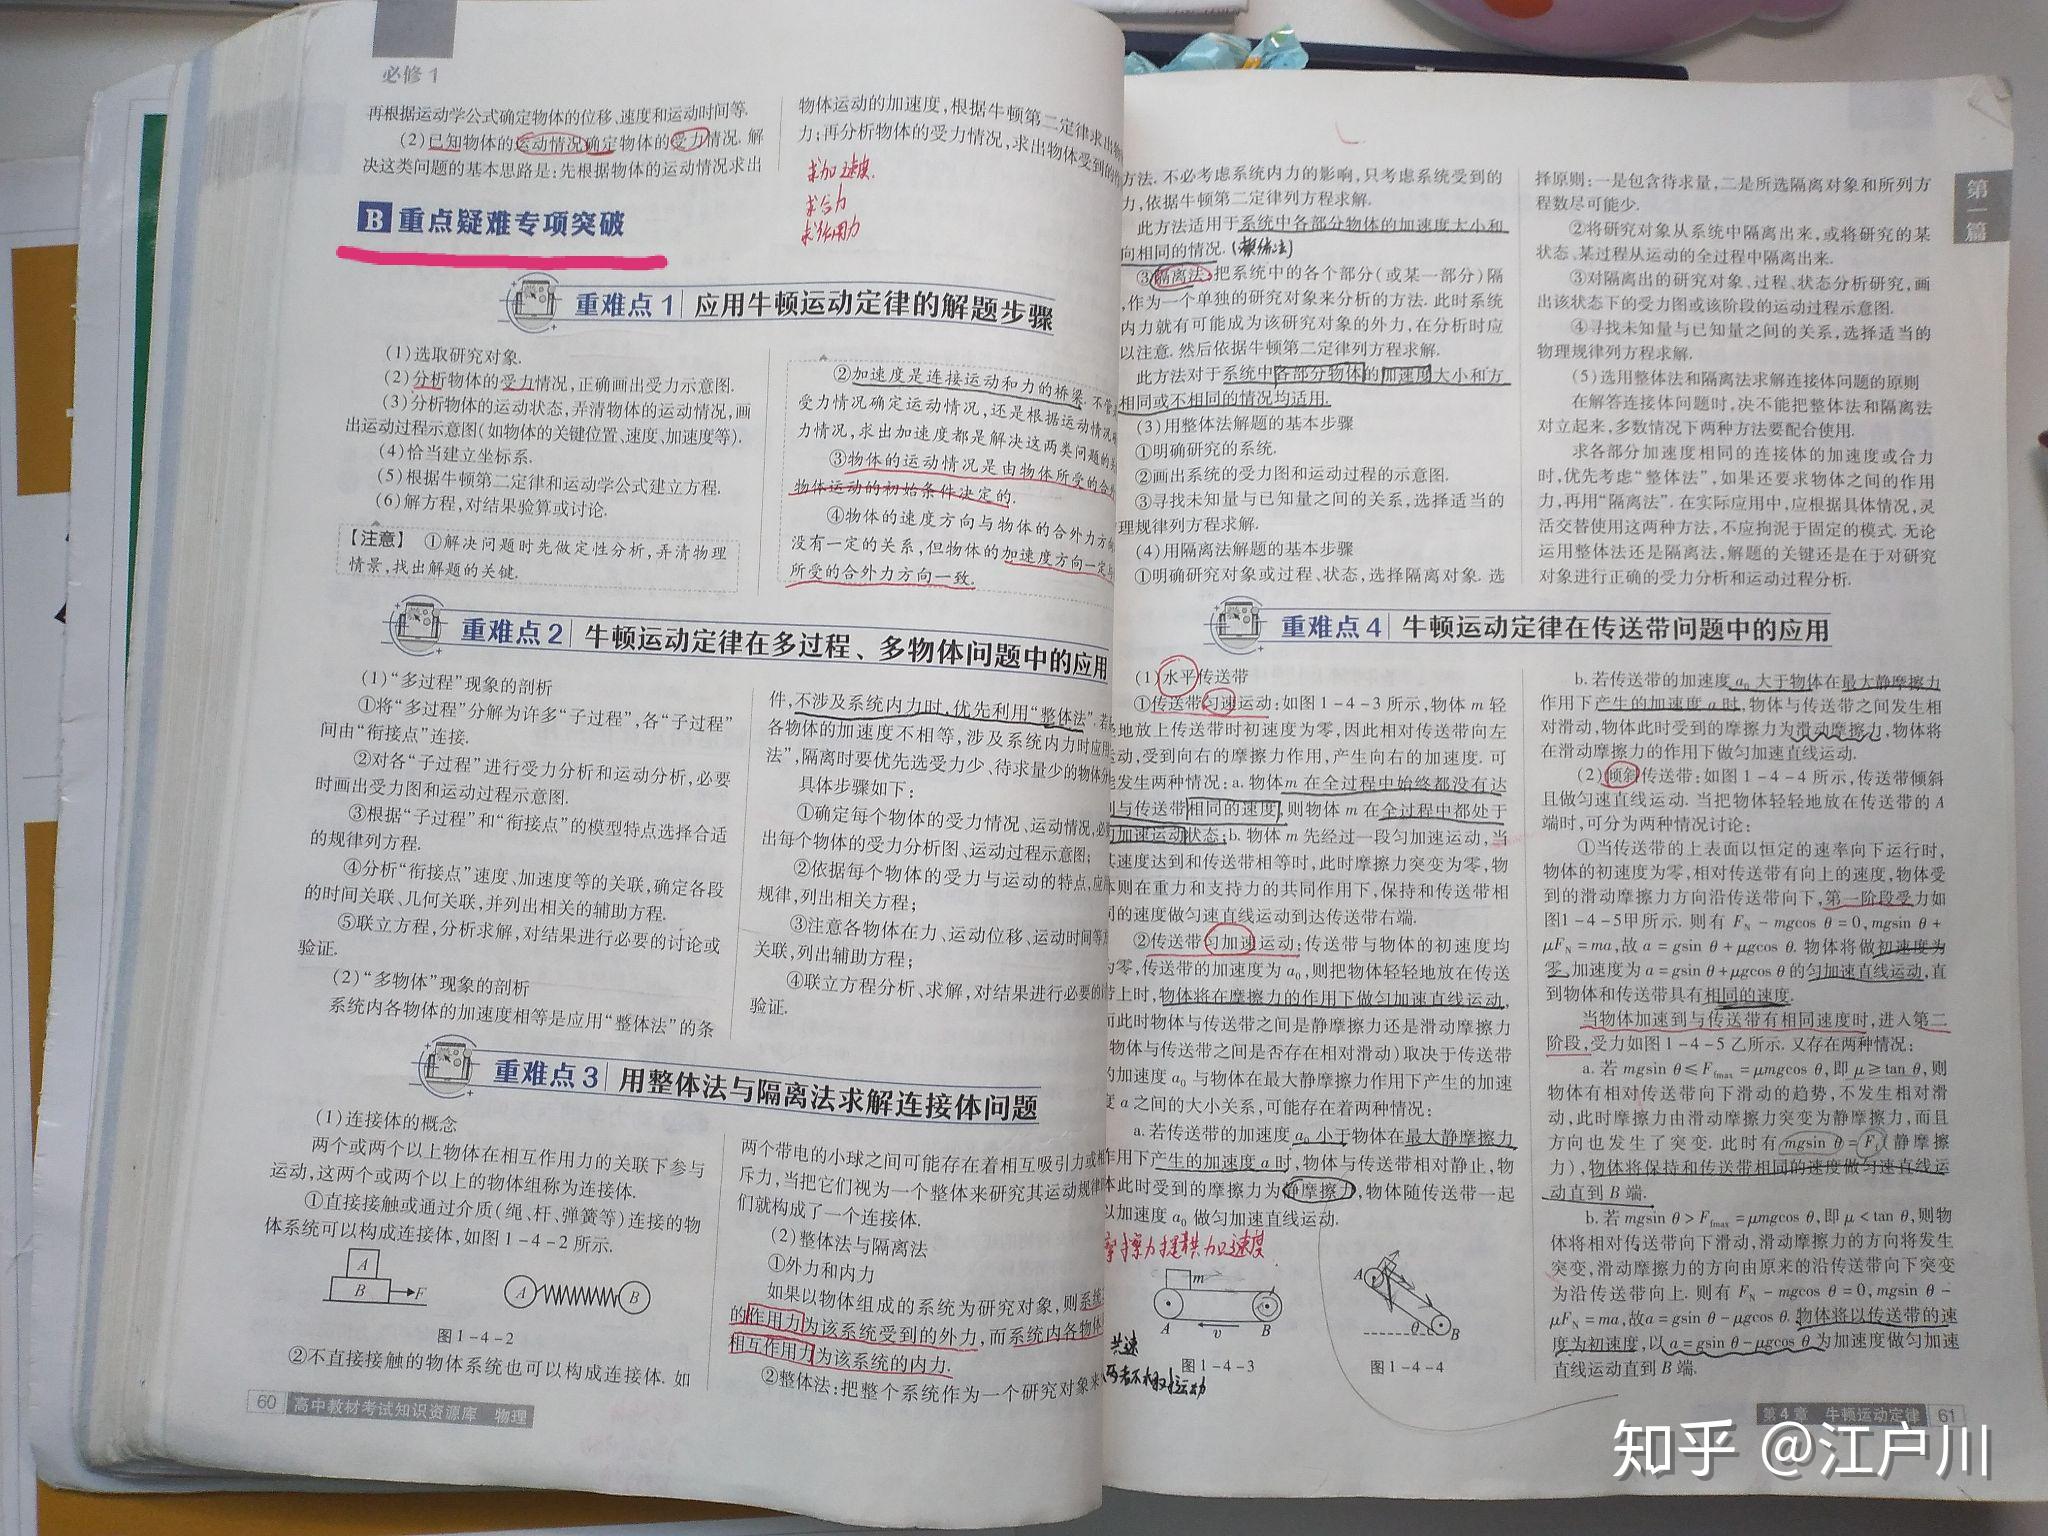 必修1
再根据运动学公式确定物体的位移、速度和运动时间等.
(2)已知物体的运动情况确定物体的受力情况. 解
决这类问题的基本思路是:先根据物体的运动情况求出
物体运动的加速度,根据牛顿第二定律求出物
力;再分析物体的受力情况,求出物体受到的
求加速度.
求合力
求作用力
B 重点疑难专项突破
重难点1 应用牛顿运动定律的解题步骤
(1)选取研究对象.
(2)分析物体的受力情况,正确画出受力示意图.
(3)分析物体的运动状态,弄清物体的运动情况,画
出运动过程示意图(如物体的关键位置、速度、加速度等).
(4)恰当建立坐标系.
(5)根据牛顿第二定律和运动学公式建立方程.
(6)解方程,对结果验算或讨论.
【注意】 ①解决问题时先做定性分析,弄清物理
情景,找出解题的关键.
②加速度是连接运动和力的桥梁. 不管
受力情况确定运动情况,还是根据运动情况
力情况,求出加速度都是解决这两类问题的
③物体的运动情况是由物体所受的合外
物体运动的初始条件决定的.
④物体的速度方向与物体的合外力方
没有一定的关系,但物体的加速度方向一定
所受的合外力方向一致.
重难点2 牛顿运动定律在多过程、多物体问题中的应用
(1)“多过程”现象的剖析
①将“多过程”分解为许多“子过程”,各“子过程”
间由“衔接点”连接.
②对各“子过程”进行受力分析和运动分析,必要
时画出受力图和运动过程示意图.
③根据“子过程”和“衔接点”的模型特点选择合适
的规律列方程.
④分析“衔接点”速度、加速度等的关联,确定各段
的时间关联、几何关联,并列出相关的辅助方程.
⑤联立方程,分析求解,对结果进行必要的讨论或
验证.
(2)“多物体”现象的剖析
系统内各物体的加速度相等是应用“整体法”的条
件,不涉及系统内力时,优先利用“整体法”.若
各物体的加速度不相等,涉及系统内力时应用
法”,隔离时要优先选受力少、待求量少的物体
具体步骤如下:
①确定每个物体的受力情况、运动情况,必
出每个物体的受力分析图、运动过程示意图;
②依据每个物体的受力与运动的特点,应
规律,列出相关方程;
③注意各物体在力、运动位移、运动时间等
关联,列出辅助方程;
④联立方程分析、求解,对结果进行必要的
验证.
重难点3 用整体法与隔离法求解连接体问题
(1)连接体的概念
两个或两个以上物体在相互作用力的关联下参与
运动,这两个或两个以上的物体组称为连接体.
①直接接触或通过介质(绳、杆、弹簧等)连接的物
体系统可以构成连接体,如图1-4-2所示.
A
B F
A B
图1-4-2
②不直接接触的物体系统也可以构成连接体. 如
两个带电的小球之间可能存在着相互吸引力或相
斥力,当把它们视为一个整体来研究其运动规律
们就构成了一个连接体.
(2)整体法与隔离法
①外力和内力
如果以物体组成的系统为研究对象,则系统
的作用力为该系统受到的外力,而系统内各物体
相互作用力为该系统的内力.
②整体法:把整个系统作为一个研究对象来
60 高中教材考试知识资源库 物理
第一篇
方法. 不必考虑系统内力的影响,只考虑系统受到的
力,依据牛顿第二定律列方程求解.
此方法适用于系统中各部分物体的加速度大小和
向相同的情况.
③隔离法:把系统中的各个部分(或某一部分)隔
,作为一个单独的研究对象来分析的方法. 此时系统
内力就有可能成为该研究对象的外力,在分析时应
以注意. 然后依据牛顿第二定律列方程求解.
此方法对于系统中各部分物体的加速度大小和方
相同或不相同的情况均适用.
(3)用整体法解题的基本步骤
①明确研究的系统.
②画出系统的受力图和运动过程的示意图.
③寻找未知量与已知量之间的关系,选择适当的
理规律列方程求解.
(4)用隔离法解题的基本步骤
①明确研究对象或过程、状态,选择隔离对象. 选
择原则:一是包含待求量,二是所选隔离对象和所列方
程数尽可能少.
②将研究对象从系统中隔离出来,或将研究的某
状态、某过程从运动的全过程中隔离出来.
③对隔离出的研究对象、过程、状态分析研究,画
出该状态下的受力图或该阶段的运动过程示意图.
④寻找未知量与已知量之间的关系,选择适当的
物理规律列方程求解.
(5)选用整体法和隔离法求解连接体问题的原则
在解答连接体问题时,决不能把整体法和隔离法
对立起来,多数情况下两种方法要配合使用.
求各部分加速度相同的连接体的加速度或合力
时,优先考虑“整体法”,如果还要求物体之间的作用
力,再用“隔离法”. 在实际应用中,应根据具体情况,灵
活交替使用这两种方法,不应拘泥于固定的模式. 无论
运用整体法还是隔离法,解题的关键还是在于对研究
对象进行正确的受力分析和运动过程分析.
重难点4 牛顿运动定律在传送带问题中的应用
(1)水平传送带
①传送带匀速运动:如图1-4-3所示,物体m轻
轻地放上传送带时初速度为零,因此相对传送带向左
运动,受到向右的摩擦力作用,产生向右的加速度. 可
能发生两种情况:a.物体m在全过程中始终都没有达
到与传送带相同的速度,则物体m在全过程中都处于
匀加速运动状态;b.物体m先经过一段匀加速运动,当
其速度达到和传送带相等时,此时摩擦力突变为零,物
体则在重力和支持力的共同作用下,保持和传送带相
同的速度做匀速直线运动到达传送带右端.
②传送带匀加速运动:传送带与物体的初速度均
为零,传送带的加速度为a₀,则把物体轻轻地放在传送
带上时,物体将在摩擦力的作用下做匀加速直线运动,
而此时物体与传送带之间是静摩擦力还是滑动摩擦力
物体与传送带之间是否存在相对滑动)取决于传送带
的加速度a₀与物体在最大静摩擦力作用下产生的加速
度a之间的大小关系,可能存在着两种情况:
a.若传送带的加速度a₀小于物体在最大静摩擦力
作用下产生的加速度a时,物体与传送带相对静止,物
体此时受到的摩擦力为静摩擦力,物体随传送带一起
以加速度a₀做匀加速直线运动.
摩擦力提供加速度
m
A v B
图1-4-3
共速
A θ B
图1-4-4
b.若传送带的加速度a₀大于物体在最大静摩擦力
作用下产生的加速度a时,物体与传送带之间发生相
对滑动,物体此时受到的摩擦力为滑动摩擦力,物体将
在滑动摩擦力的作用下做匀加速直线运动.
(2)倾斜传送带:如图1-4-4所示,传送带倾斜
且做匀速直线运动. 当把物体轻轻地放在传送带的A
端时,可分为两种情况讨论:
①当传送带的上表面以恒定的速率向下运行时,
物体的初速度为零,相对传送带有向上的速度,物体受
到的滑动摩擦力方向沿传送带向下,第一阶段受力如
图1-4-5甲所示. 则有 F_N-mgcos θ=0,mgsin θ+
μF_N=ma,故a=gsin θ+μgcos θ.物体将做初速度为
零,加速度为a=gsin θ+μgcos θ的匀加速直线运动,直
到物体和传送带具有相同的速度.
当物体加速到与传送带有相同速度时,进入第二
阶段,受力如图1-4-5乙所示. 又存在两种情况:
a.若 mgsin θ≤F_fmax=μmgcos θ,即μ≥tan θ,则
物体有相对传送带向下滑动的趋势,不发生相对滑
动,此时摩擦力由滑动摩擦力突变为静摩擦力,而且
方向也发生了突变. 此时有 mgsin θ=F_f(静摩擦
力),物体将保持和传送带相同的速度做匀速直线运
动直到B端.
b.若 mgsin θ>F_fmax=μmgcos θ,即μ<tan θ,则物
体将相对传送带向下滑动,滑动摩擦力的方向将发生
突变,滑动摩擦力的方向由原来的沿传送带向下突变
为沿传送带向上. 则有 F_N-mgcos θ=0,mgsin θ-
μF_N=ma,故a=gsin θ-μgcos θ.物体将以传送带的速
度为初速度,以a=gsin θ-μgcos θ为加速度做匀加速
直线运动直到B端.
第4章 牛顿运动定律 61
知乎 @江户川